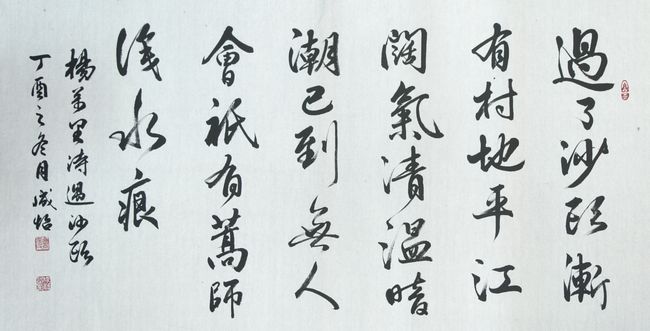 過了沙頭漸
有村地平江
闊氣清溫暗
潮已到無人
會祇有蒿師
識水痕
楊萬里詩過沙頭
丁酉之冬月